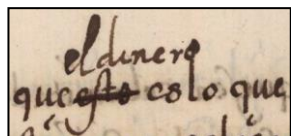 el dinero
que esto es lo que